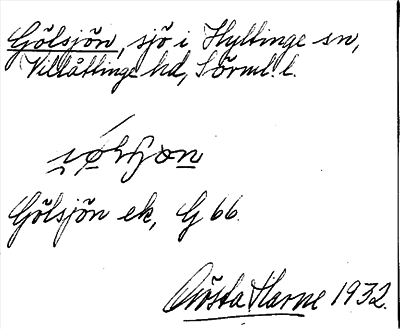 Gölsjön, sjö i Hyltinge sn,
Villåttinge hd, Sörml. l.
Gölsjön ek, G 66.
Gösta Harne 1932.